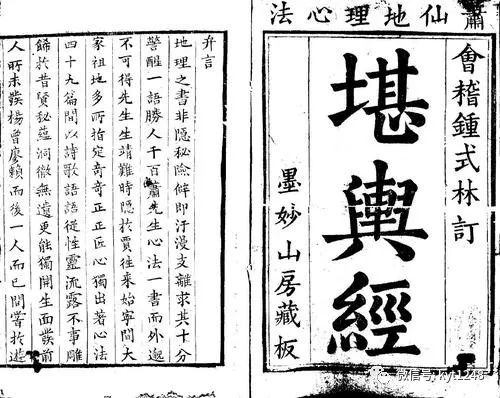 蕭仙地理心法
會稽鍾式林訂
堪輿經
墨妙山房藏板
弁言
地理之書非隱秘險僻即汗漫支離求其十分
警醒一語勝人千百蕭先生心法一書而外邈
不可得先生生靖難時隱於賈往來始寧間大
家祖地多所指定奇奇正正匠心獨出著心法
四十九篇間以詩歌語語從性靈流露不事雕
於昔賢秘蘊洞微無遺更能獨開生面發前
人所未發楊曾廖賴而後一人而已間嘗於遊
微信号: kyt1248